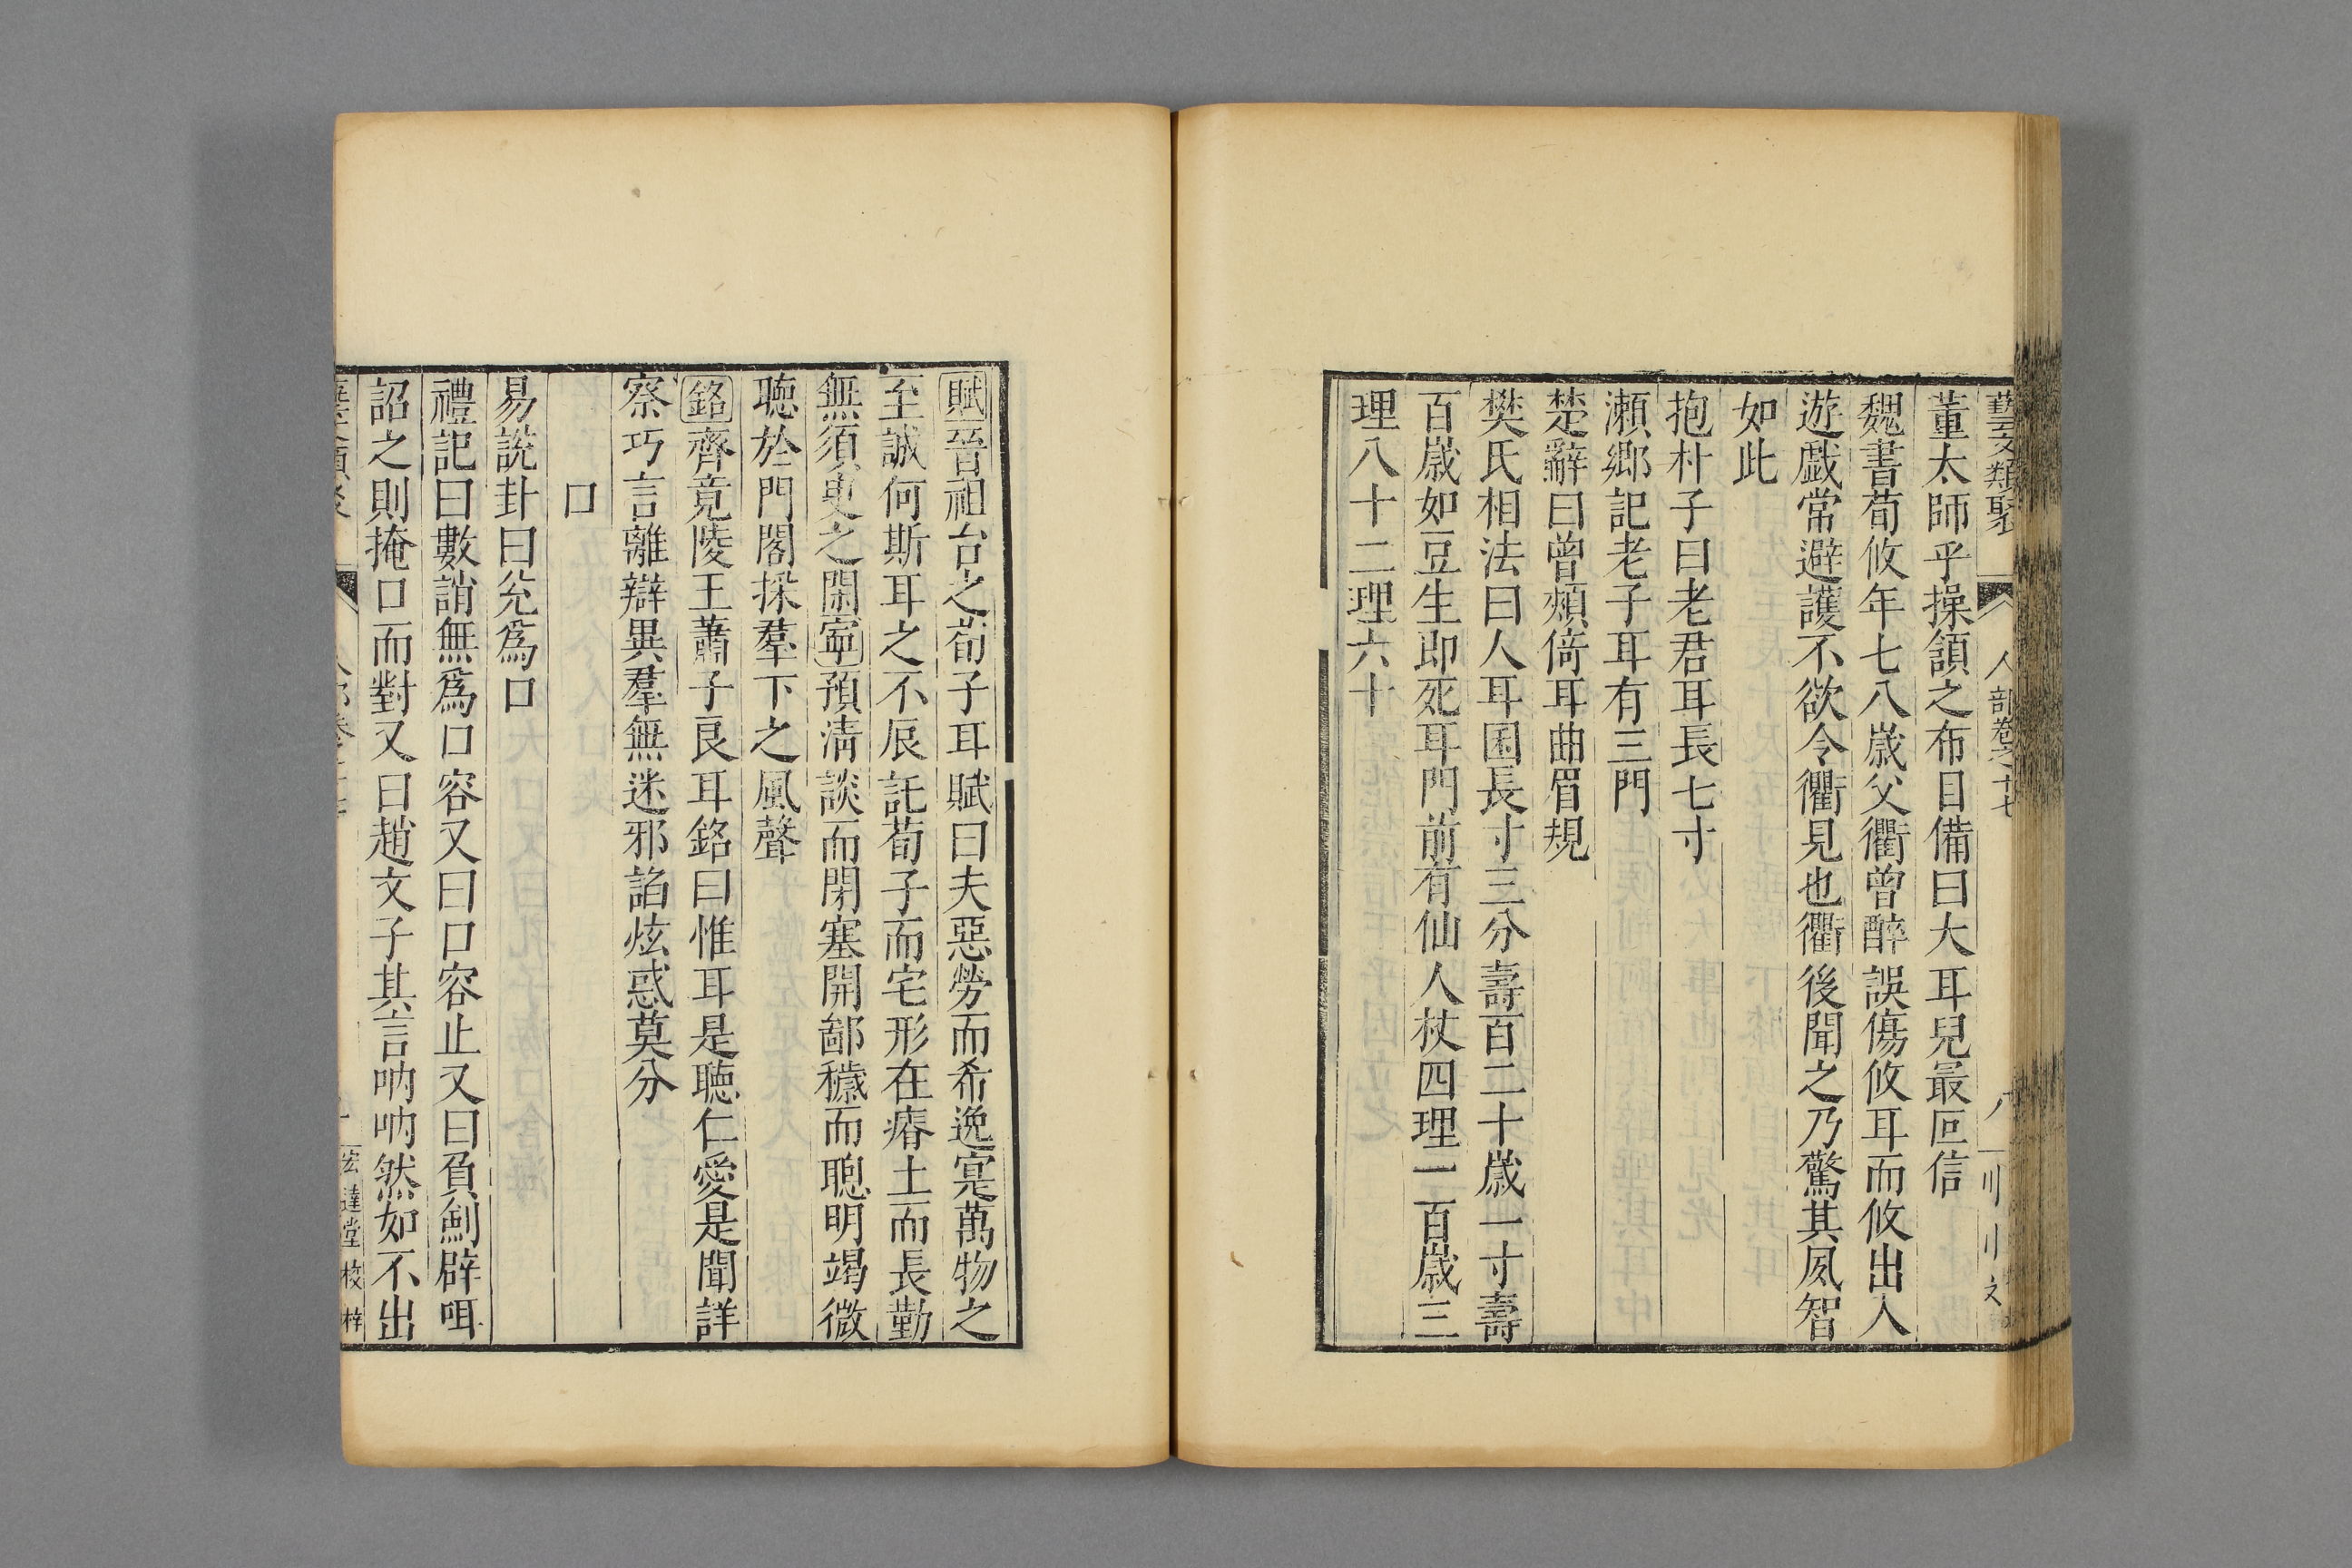 藝文類聚 人部卷之十七
董太師乎操領之布目備曰大耳兒最叵信
魏書荀攸年七八歲父衢曾醉誤傷攸耳而攸出入
遊戲常避護不欲令衢見也衢後聞之乃驚其夙智
如此
抱朴子曰老君耳長七寸
瀨鄉記老子耳有三門
楚辭曰曾頰倚耳曲眉規
樊氏相法曰人耳困長寸三分壽百二十歲一寸壽
百歲如豆生即死耳門前有仙人杖四理二百歲三
理八十二理六十
賦晉祖台之荀子耳賦曰夫惡勞而希逸寔萬物之
至誠何斯耳之不辰託荀子而宅形在瘠土而長勤
無須臾之閑寧預清談而閉塞開鄙穢而聰明竭微
聴於門閣採羣下之風聲
銘齊竟陵王蕭子良耳銘曰惟耳是聴仁愛是聞詳
察巧言離辯異羣無迷邪諂炫惑莫分
口
易說卦曰兊爲口
禮記曰數誚無爲口容又曰口容止又曰負劍辟咡
詔之則掩口而對又曰趙文子其言吶吶然如不出
宏達堂校梓